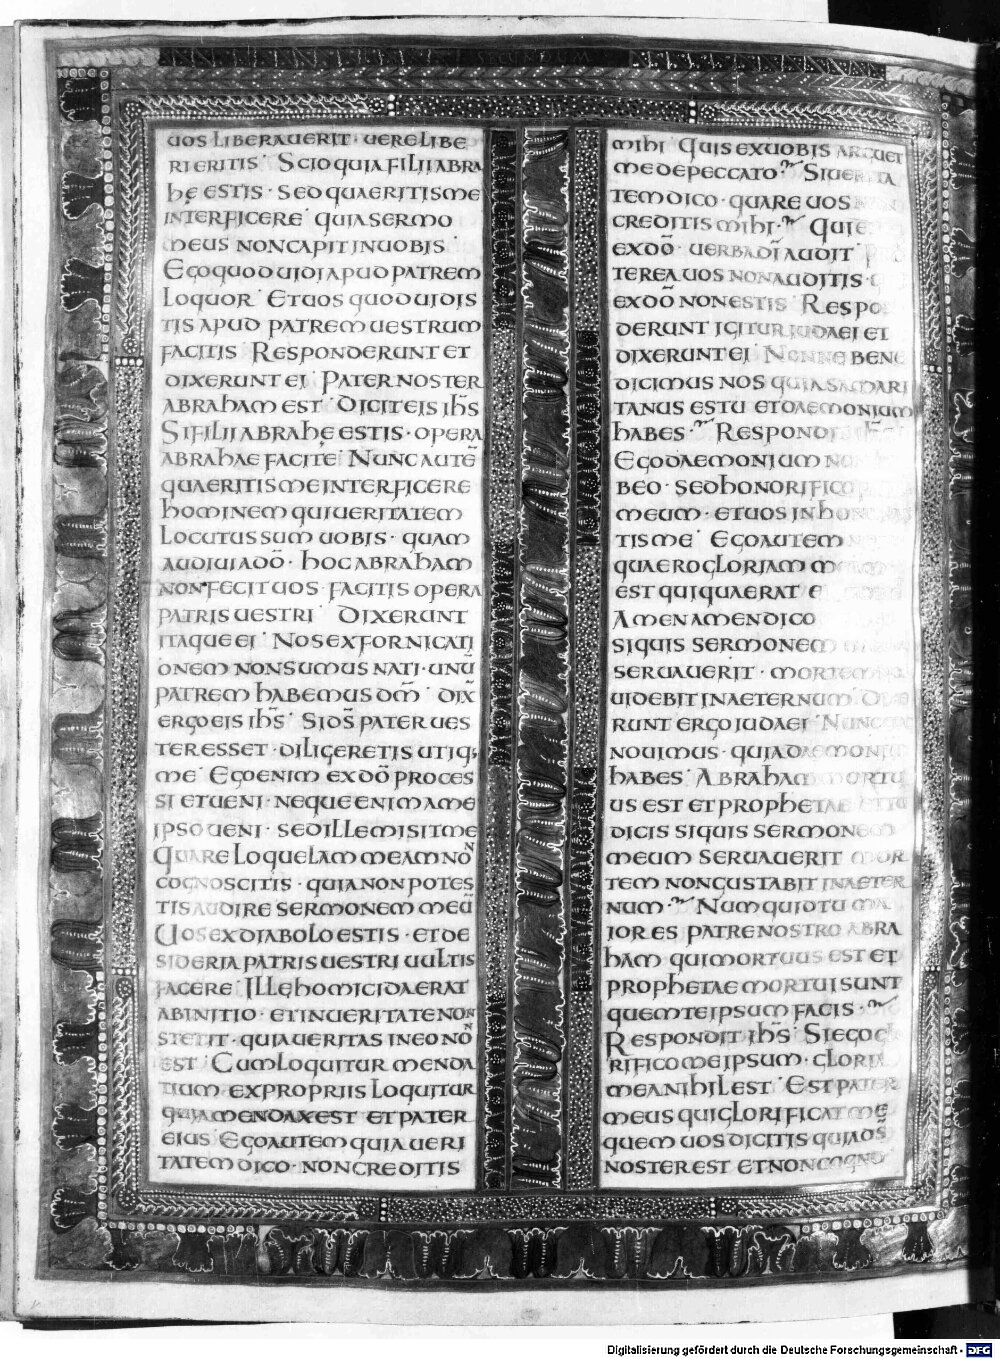 uos liberauerit · uere libe
rieritis · Scio quia filii abra
hę estis · sed quaeritis me
interficere · quia sermo
meus non capit in uobis ·
Ego quod uidi apud patrem
loquor · Et uos quod uidis
tis apud patrem uestrum
facitis · Responderunt et
dixerunt ei · Pater noster
abraham est · Dicit eis ihs̄
Si filii abrahę estis · opera
abrahae facite · Nunc autē
quaeritis me interficere
hominem qui ueritatem
locutus sum uobis · quam
audiui a dō · hoc abraham
non fecit uos · facitis opera
patris uestri · Dixerunt
itaque ei · Nos ex fornicati
onem non sumus nati · unū
patrem habemus dm̄ · dix̄
ergo eis ihs̄ · Si ds̄ pater ues
ter esset · diligeretis utiq;
me · Ego enim ex dō proces
si et ueni · neque enim a me
ipso ueni · sed ille me misit
Quare loquelam meam nō
cognoscitis · quia non potes
tis audire sermonem meū
Uos ex diabolo estis · et de
sideria patris uestri uultis
facere · Ille homicida erat
ab initio · et in ueritate non
stetit · quia ueritas in eo nō
est · Cum loquitur menda
tium · ex propriis loquitur
quia mendax est et pater
eius · Ego autem quia ueri
tatem dico · non creditis
mihi · Quis ex uobis arguet
me de peccato · Si uerita
tem dico · quare uos
creditis mihi · Qui e
ex dō · uerba dī audit ·
terea uos non auditis ·
ex dō non estis · Respo
derunt igitur iudaei et
dixerunt ei · Nonne bene
dicimus nos quia samari
tanus es tu et daemonium
habes · Respondi
Ego daemonium
beo · sed honorifico
meum · et uos inhon
tis me · Ego autem
quaero gloriam
est qui quaerat
Amen amen dico
siquis sermonem
seruauerit · mortem
uidebit in aeternum ·
runt ergo iudaei · Nunc
nouimus · quia daemoni
habes · Abraham mortu
us est et prophetae
dicis siquis sermonem
meum seruauerit mor
tem non gustabit in aeter
num · Numquid tu ma
ior es patre nostro abra
ham qui mortuus est et
prophetae mortui sunt
quem te ipsum facis ·
Respondit ihs̄ · Si ego g
rifico me ipsum · gloria
mea nihil est · Est pater
meus qui glorificat me
quem uos dicitis quia ds̄
noster est et non cogno
Digitalisierung gefördert durch die Deutsche Forschungsgemeinschaft - DFG